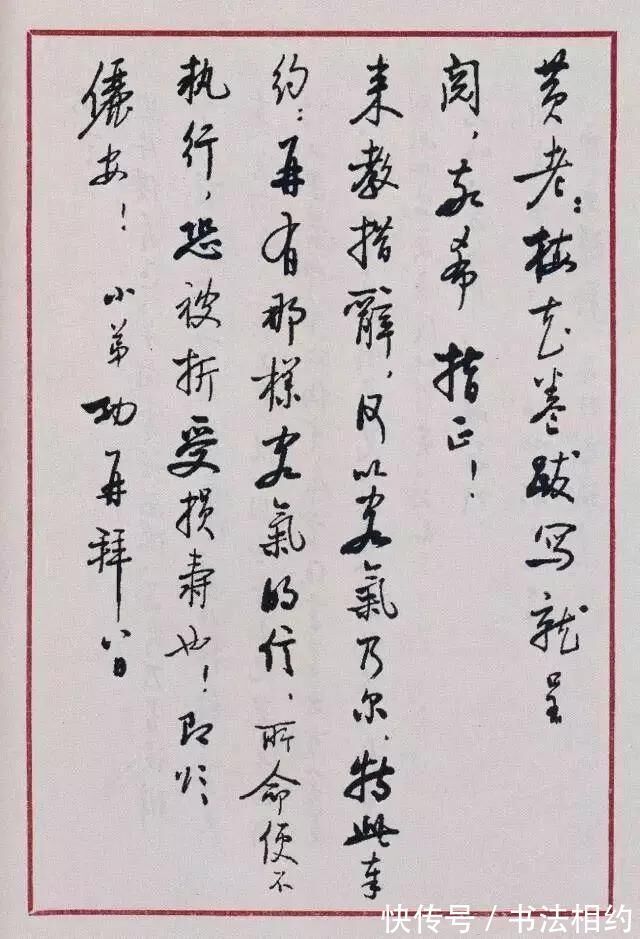 黄老：梅花卷跋写就呈
阅，敬希 指正！
来教措辞，何以客氣乃尔，特此奉
约：再有那樣客氣的信，所命便不
执行，恐被折受损寿也！即颂
儷安！ 小弟功再拜 八日
快传号 / 书法相约